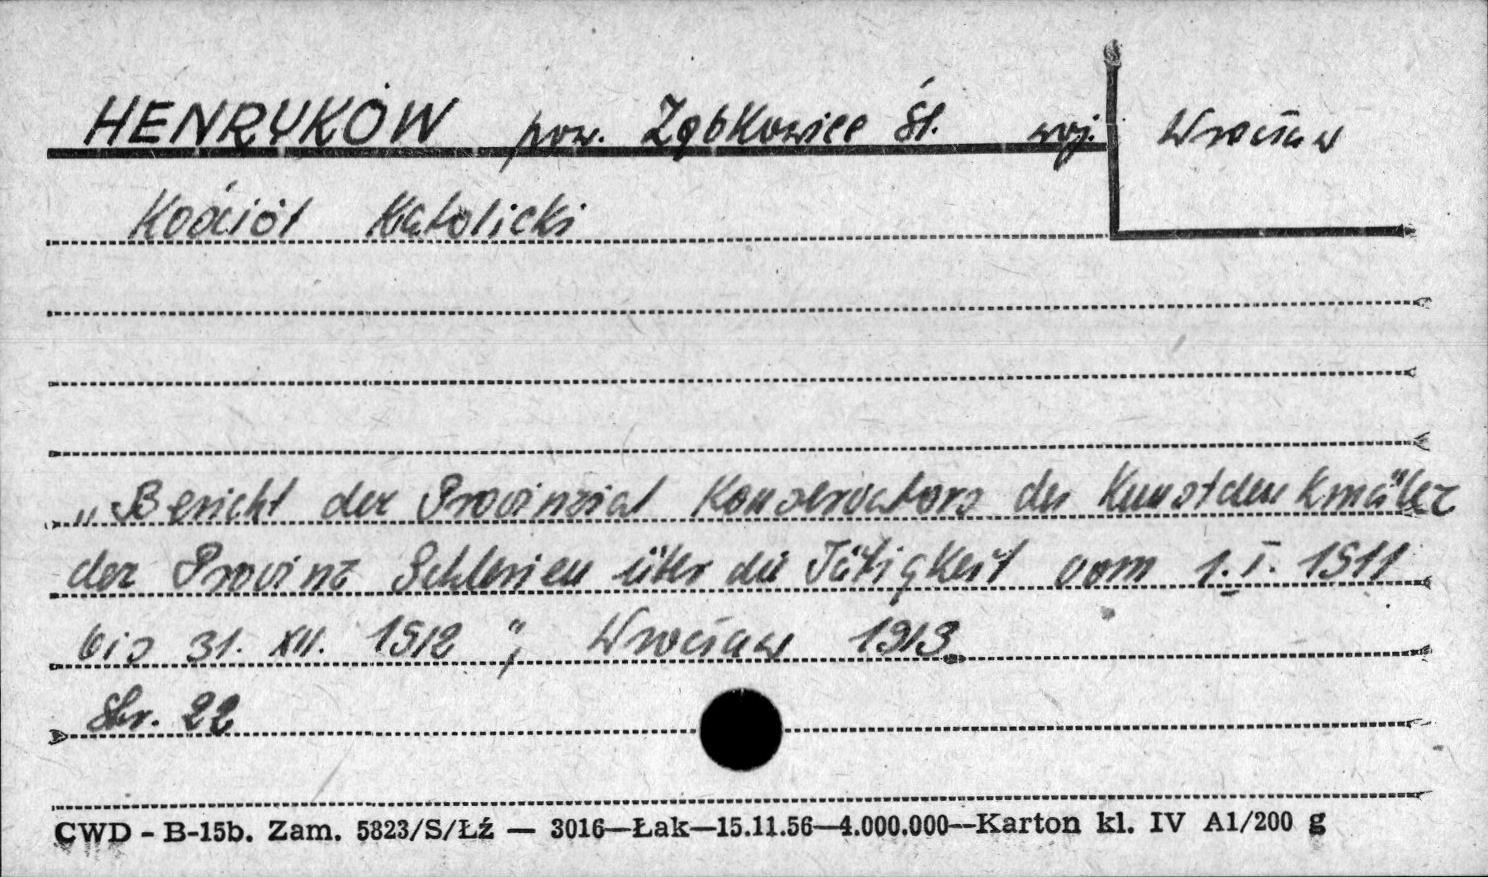 HENRYKÓW pow. Ząbkowice Śl. woj. Wrocław
Kościół Katolicki
„Bericht der Provinzial Konservators der Kunstdenkmäler
der Provinz Schlesien über die Tätigkeit vom 1.I. 1911
bis 31. XII. 1912", Wrocław 1913.
Str. 22
CWD - B-15b. Zam. 5823/S/Łź — 3016—Łak—15.11.56—4.000.000—Karton kl. IV A1/200 g